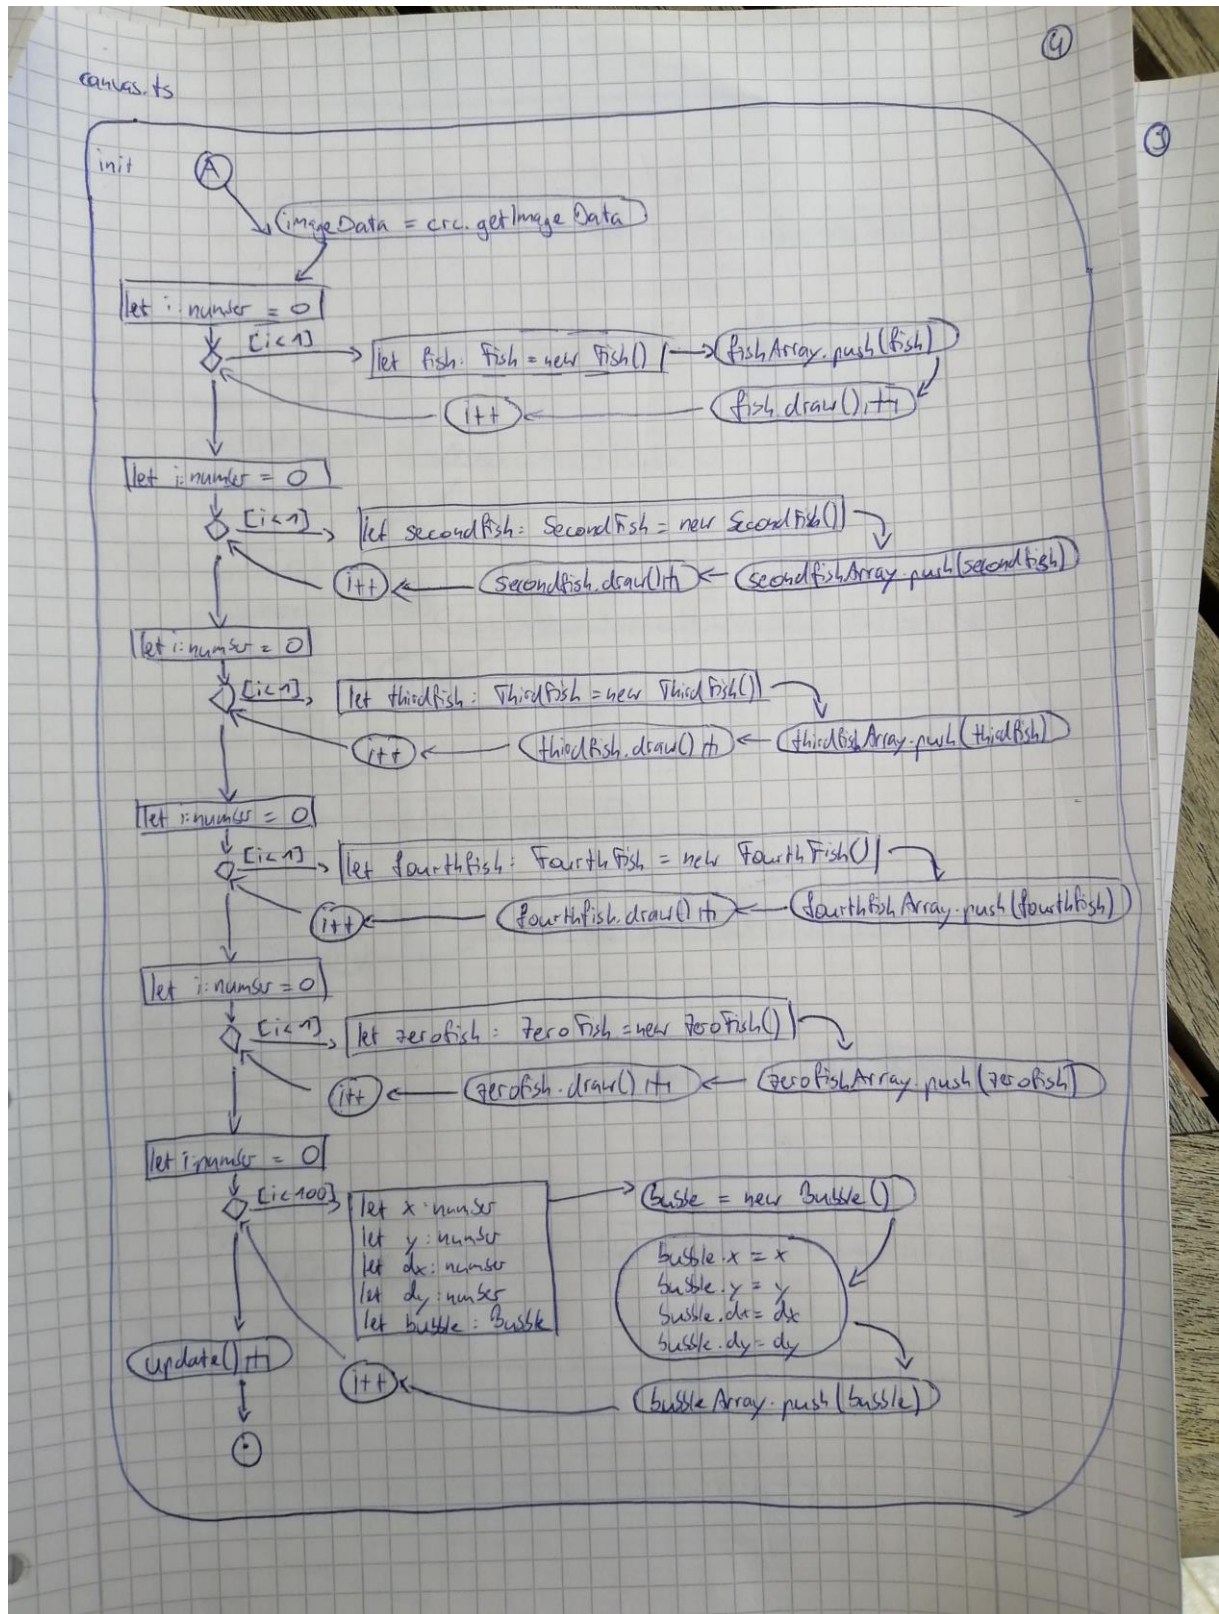 ④
canvas.ts
③
init
A
imageData = crc.getImageData
let i: number = 0
[i<1]
let fish: Fish = new Fish()
fishArray.push(fish)
i++
fish.draw()
let i: number = 0
[i<1]
let secondfish: SecondFish = new SecondFish()
i++
secondfish.draw()
secondfishArray.push(secondfish)
let i: number = 0
[i<1]
let thirdfish: ThirdFish = new ThirdFish()
i++
thirdfish.draw()
thirdfishArray.push(thirdfish)
let i: number = 0
[i<1]
let fourthfish: FourthFish = new FourthFish()
i++
fourthfish.draw()
fourthfishArray.push(fourthfish)
let i: number = 0
[i<1]
let zerofish: ZeroFish = new ZeroFish()
i++
zerofish.draw()
zerofishArray.push(zerofish)
let i: number = 0
[i<100]
let x: number
let y: number
let dx: number
let dy: number
let bubble: Bubble
bubble = new Bubble()
bubble.x = x
bubble.y = y
bubble.dx = dx
bubble.dy = dy
update()
i++
bubbleArray.push(bubble)